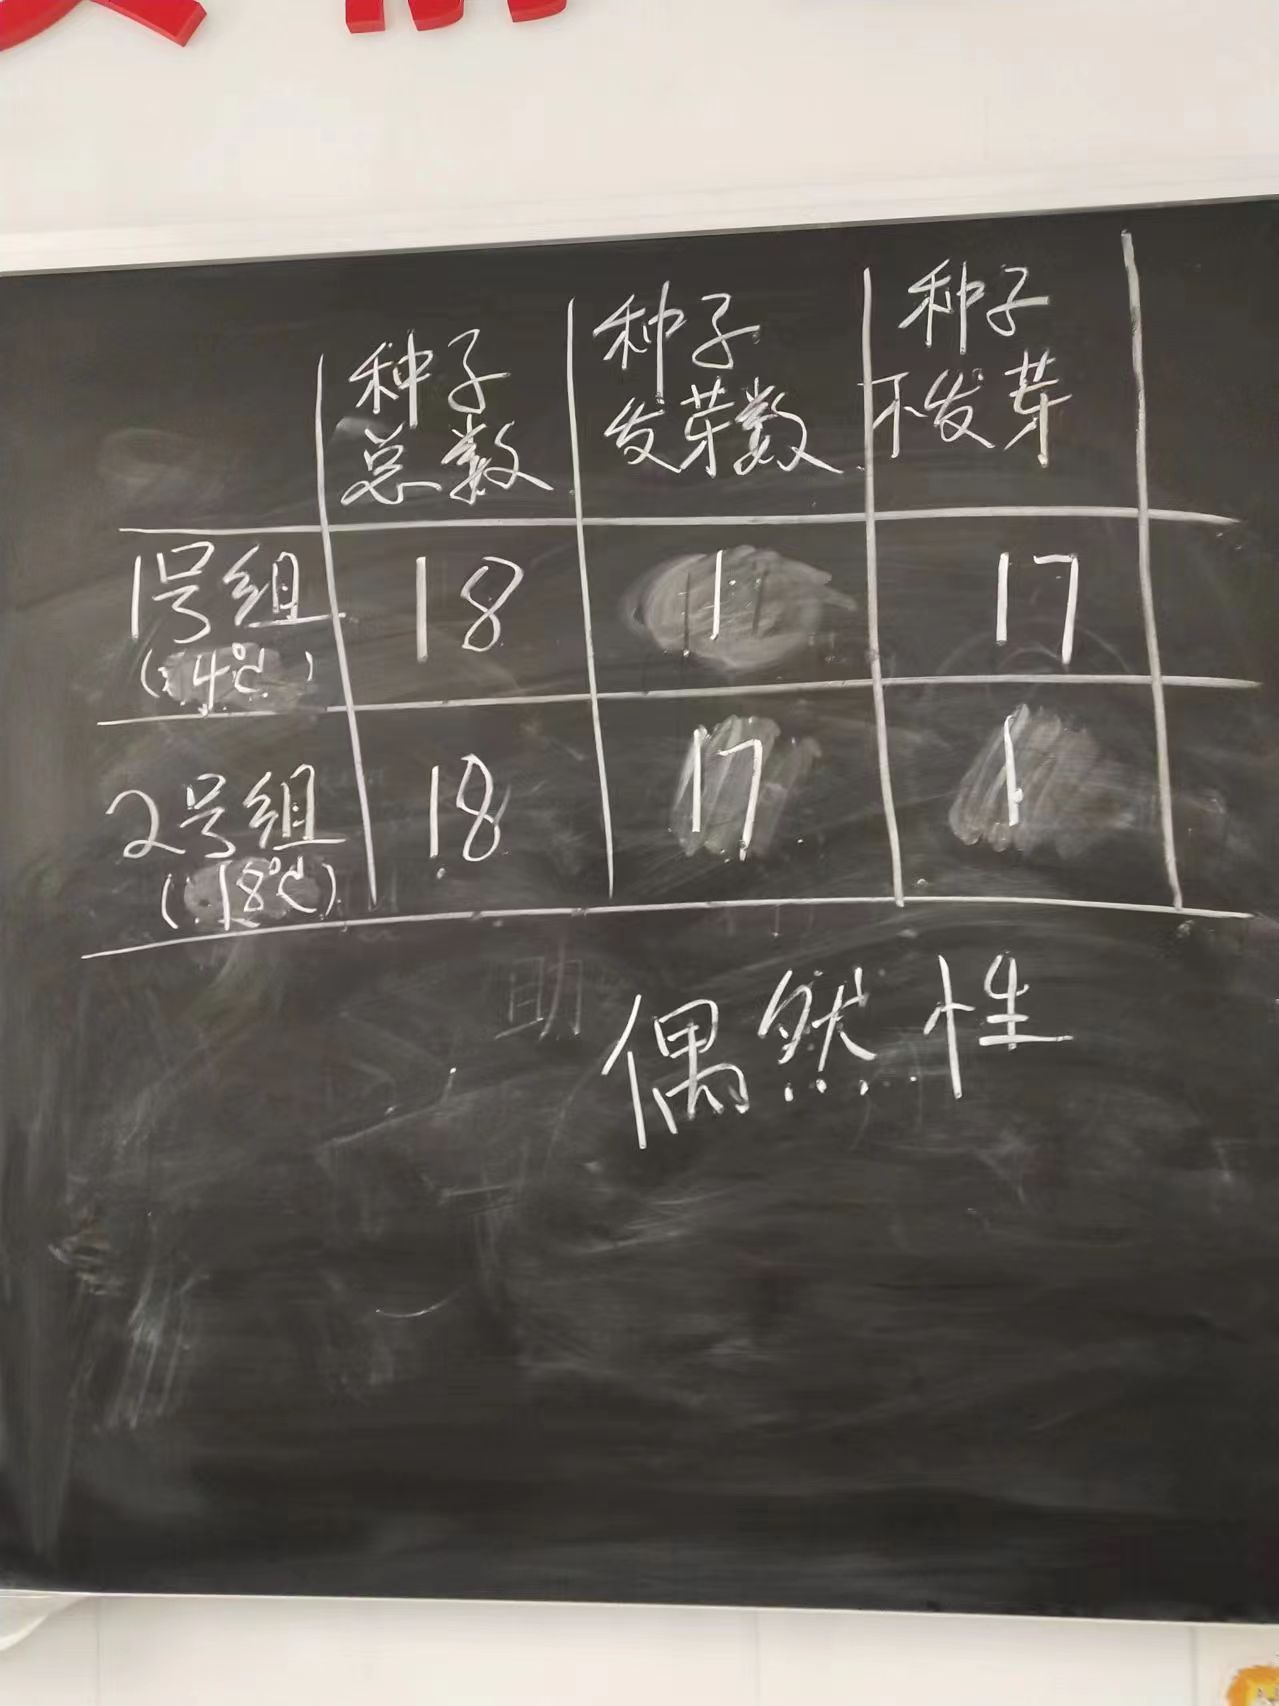 种子 种子 种子
总数 发芽数 不发芽
1号组 18 1 17
(4℃)
2号组 18 17 1
(18℃)
偶然性